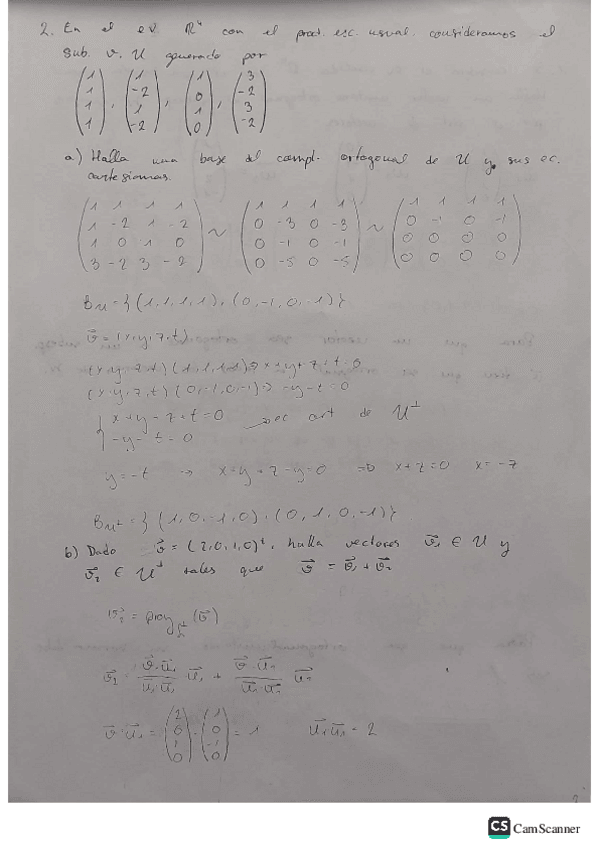 2. En el ev R⁴ con el prod. esc. usual consideramos el
sub. v. U generado por
(1 1 1 1), (1 -2 1 -2), (1 0 1 0), (3 -2 3 -2)
a) Halla una base del compl. ortogonal de U y sus ec.
cartesianas.
(1 1 1 1 / 1 -2 1 -2 / 1 0 1 0 / 3 -2 3 -2) ~ (1 1 1 1 / 0 -3 0 -3 / 0 -1 0 -1 / 0 -5 0 -5) ~ (1 1 1 1 / 0 -1 0 -1 / 0 0 0 0 / 0 0 0 0)
B_U = { (1,1,1,1), (0,-1,0,-1) }
v⃗ = (x,y,z,t)
(x,y,z,t)(1,1,1,1) => x+y+z+t=0
(x,y,z,t)(0,-1,0,-1) => -y-t=0
x+y-z+t=0
-y-t=0 → ec de U⊥
y=-t → x+y+z-y=0 => x+z=0 x=-z
B_U⊥ = { (1,0,-1,0), (0,1,0,-1) }
b) Dado v⃗ = (2,0,1,0)ᵗ, halla vectores v⃗₁ ∈ U y
v⃗₂ ∈ U⊥ tales que v⃗ = v⃗₁ + v⃗₂
v⃗₂ = proy (v⃗)
v⃗·u⃗₁ = (2 0 1 0)·(1 0 -1 0) = 1 u⃗₁u⃗₁ = 2
CS CamScanner